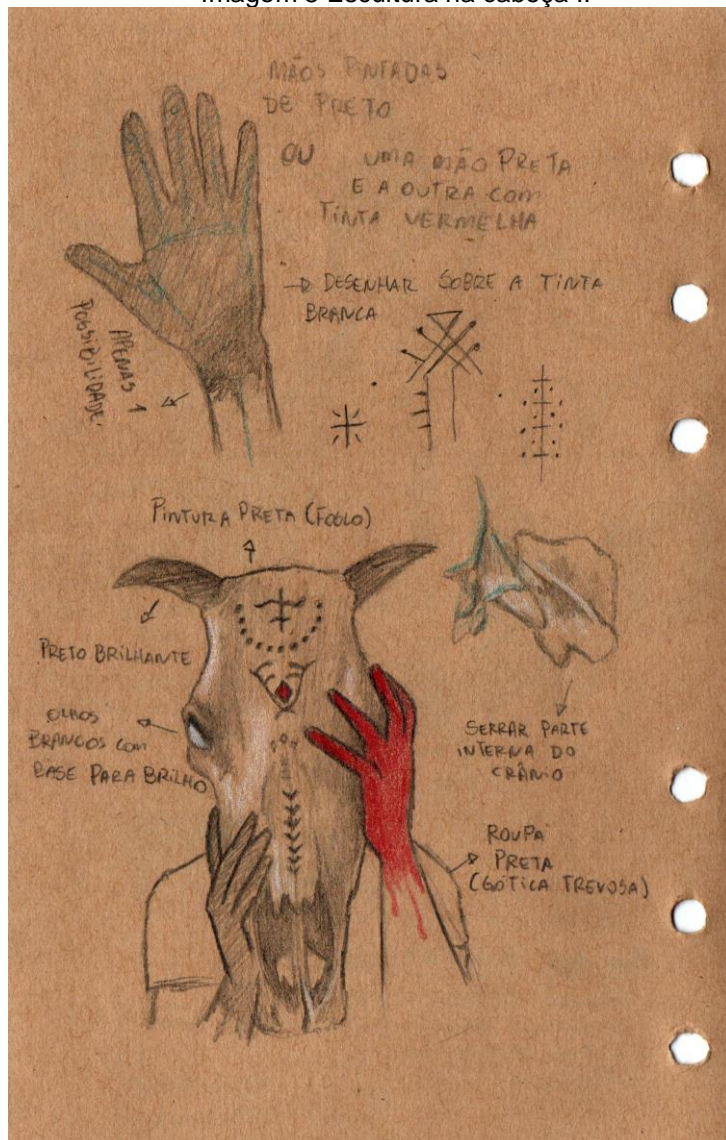 MÃOS PINTADAS
DE PRETO
OU UMA MÃO PRETA
E A OUTRA COM
TINTA VERMELHA
→ DESENHAR SOBRE A TINTA
BRANCA
APENAS 1
POSSIBILIDADE.
PINTURA PRETA (FOGLO)
PRETO BRILHANTE
OLHOS
BRANCOS COM
BASE PARA BRILHO
SERRAR PARTE
INTERNA DO
CRÂNIO
ROUPA
PRETA
(GÓTICA TREVOSA)